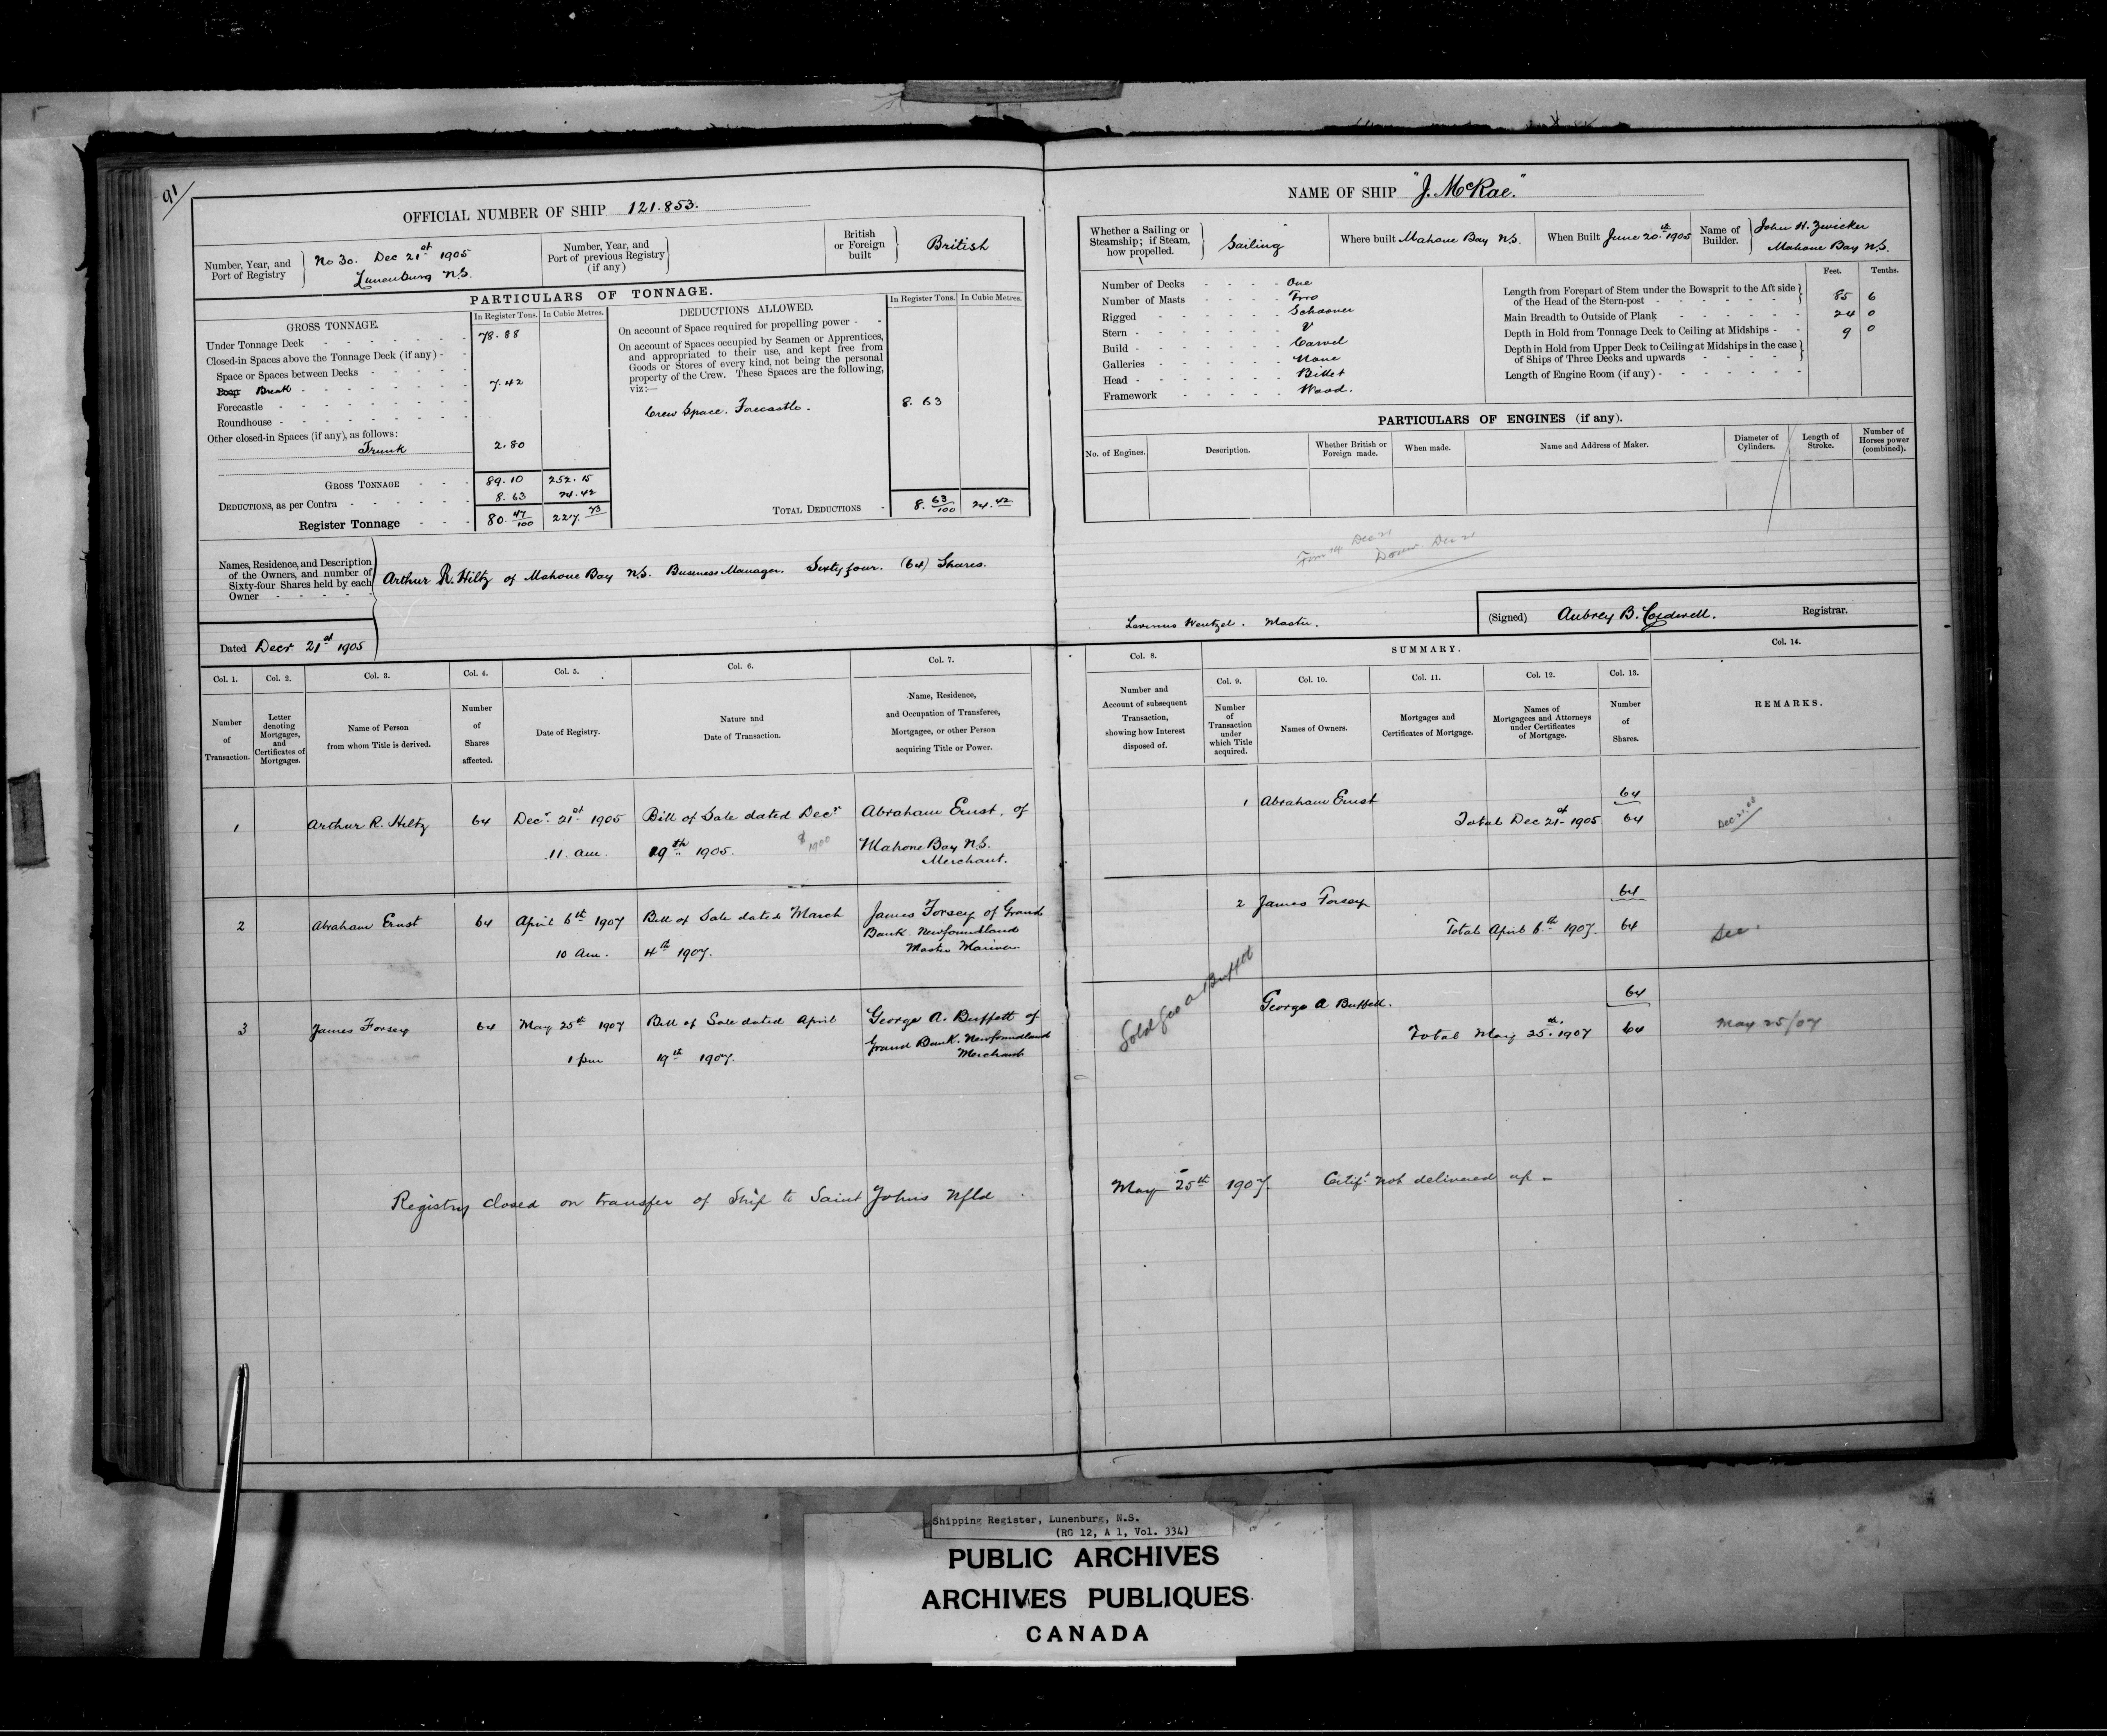 91/
OFFICIAL NUMBER OF SHIP 121.853.
Number, Year, and Port of Registry
No 30. Dec 21st 1905
Lunenburg N.S.
Number, Year, and Port of previous Registry (if any)
British or Foreign built
British
PARTICULARS OF TONNAGE.
GROSS TONNAGE.
In Register Tons. In Cubic Metres.
Under Tonnage Deck 78.88
Closed-in Spaces above the Tonnage Deck (if any) -
Space or Spaces between Decks
Poop Break 7.42
Forecastle
Roundhouse
Other closed-in Spaces (if any), as follows:
Trunk 2.80
GROSS TONNAGE 89.10 252.15
DEDUCTIONS, as per Contra 8.63 24.42
Register Tonnage 80.47/100 227.73
DEDUCTIONS ALLOWED.
In Register Tons. In Cubic Metres.
On account of Space required for propelling power - -
On account of Spaces occupied by Seamen or Apprentices,
and appropriated to their use, and kept free from
Goods or Stores of every kind, not being the personal
property of the Crew. These Spaces are the following,
viz:—
Crew Space. Forecastle. 8.63
TOTAL DEDUCTIONS 8.63/100 24.42
Names, Residence, and Description
of the Owners, and number of
Sixty-four Shares held by each
Owner
Arthur R. Hiltz of Mahone Bay N.S. Business Manager. Sixty four. (64) Shares.
Dated Decr 21st 1905
Col. 1. Col. 2. Col. 3. Col. 4. Col. 5. Col. 6. Col. 7.
Number of Transaction.
Letter denoting Mortgages, and Certificates of Mortgages.
Name of Person from whom Title is derived.
Number of Shares affected.
Date of Registry.
Nature and Date of Transaction.
Name, Residence, and Occupation of Transferee, Mortgagee, or other Person acquiring Title or Power.
1 Arthur R. Hiltz 64 Decr. 21st 1905 Bill of Sale dated Decr Abraham Ernst, of
11. am. 19th 1905. $1900 Mahone Bay N.S.
Merchant.
2 Abraham Ernst 64 April 6th 1907 Bill of Sale dated March James Forsey of Grand
Bank. Newfoundland
10 am. 4th 1907. Master Mariner
3 James Forsey 64 May 25th 1907 Bill of Sale dated April George A. Buffett of
Grand Bank. Newfoundland
1 pm 19th 1907. Merchant
Registry closed on transfer of Ship to Saint Johns Nfld.
NAME OF SHIP "J. McRae."
Whether a Sailing or Steamship; if Steam, how propelled.
Sailing
Where built Mahone Bay N.S.
When Built June 20th 1905
Name of Builder.
John H. Zwicker
Mahone Bay N.S.
Number of Decks One
Number of Masts Two
Rigged Schooner
Stern V
Build Carvel
Galleries None
Head Billet
Framework Wood.
Feet. Tenths.
Length from Forepart of Stem under the Bowsprit to the Aft side
of the Head of the Stern-post 85 6
Main Breadth to Outside of Plank 24 0
Depth in Hold from Tonnage Deck to Ceiling at Midships 9 0
Depth in Hold from Upper Deck to Ceiling at Midships in the case
of Ships of Three Decks and upwards
Length of Engine Room (if any)
PARTICULARS OF ENGINES (if any).
No. of Engines. Description. Whether British or Foreign made. When made. Name and Address of Maker. Diameter of Cylinders. Length of Stroke. Number of Horses power (combined).
Dec 21
Dec 21
Wentzel. Master.
(Signed) Aubrey B. Caldwell. Registrar.
Col. 8. SUMMARY. Col. 14.
Col. 9. Col. 10. Col. 11. Col. 12. Col. 13.
Number and Account of subsequent Transaction, showing how Interest disposed of.
Number of Transaction under which Title acquired.
Names of Owners.
Mortgages and Certificates of Mortgage.
Names of Mortgagees and Attorneys under Certificates of Mortgage.
Number of Shares.
REMARKS.
1 Abraham Ernst 64
Total Dec 21st 1905 64
2 James Forsey 64
Total April 6th 1907. 64
Sold Geo A Buffett
George A Buffett. 64
Total May 25th 1907 64
May 25/07
May 25th 1907. Certif. not delivered up -
Shipping Register, Lunenburg, N.S.
(RG 12, A 1, Vol. 334)
PUBLIC ARCHIVES
ARCHIVES PUBLIQUES
CANADA